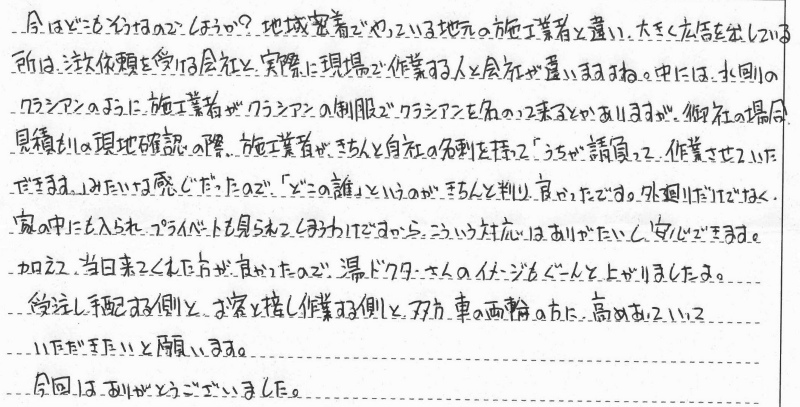 今はどこもそうなのでしょうか? 地域密着でやっている地元の施工業者と違い、大きく広告を出している
所は、注文依頼を受ける会社と、実際に現場で作業する人と会社が違いますよね。中には、水回りの
クラシアンのように、施工業者がクラシアンの制服でクラシアンを名のって来るとかありますが、御社の場合、
見積もりの現地確認の際、施工業者が、きちんと自社の名刺を持って「うちが請負って、作業させていた
だきます。」みたいな感じだったので、「どこの誰」というのがきちんと判り、良かったです。外廻りだけでなく、
家の中にも入られ、プライベートも見られてしまうわけですから、こういう対応はありがたいし、安心できます。
加えて、当日来てくれた方が良かったので、湯ドクターさんのイメージもぐーんと上がりましたよ。
受注し手配する側と、お客と接し作業する側と、双方、車の両輪の方に、高めあっていって
いただきたいと願います。
今回はありがとうございました。